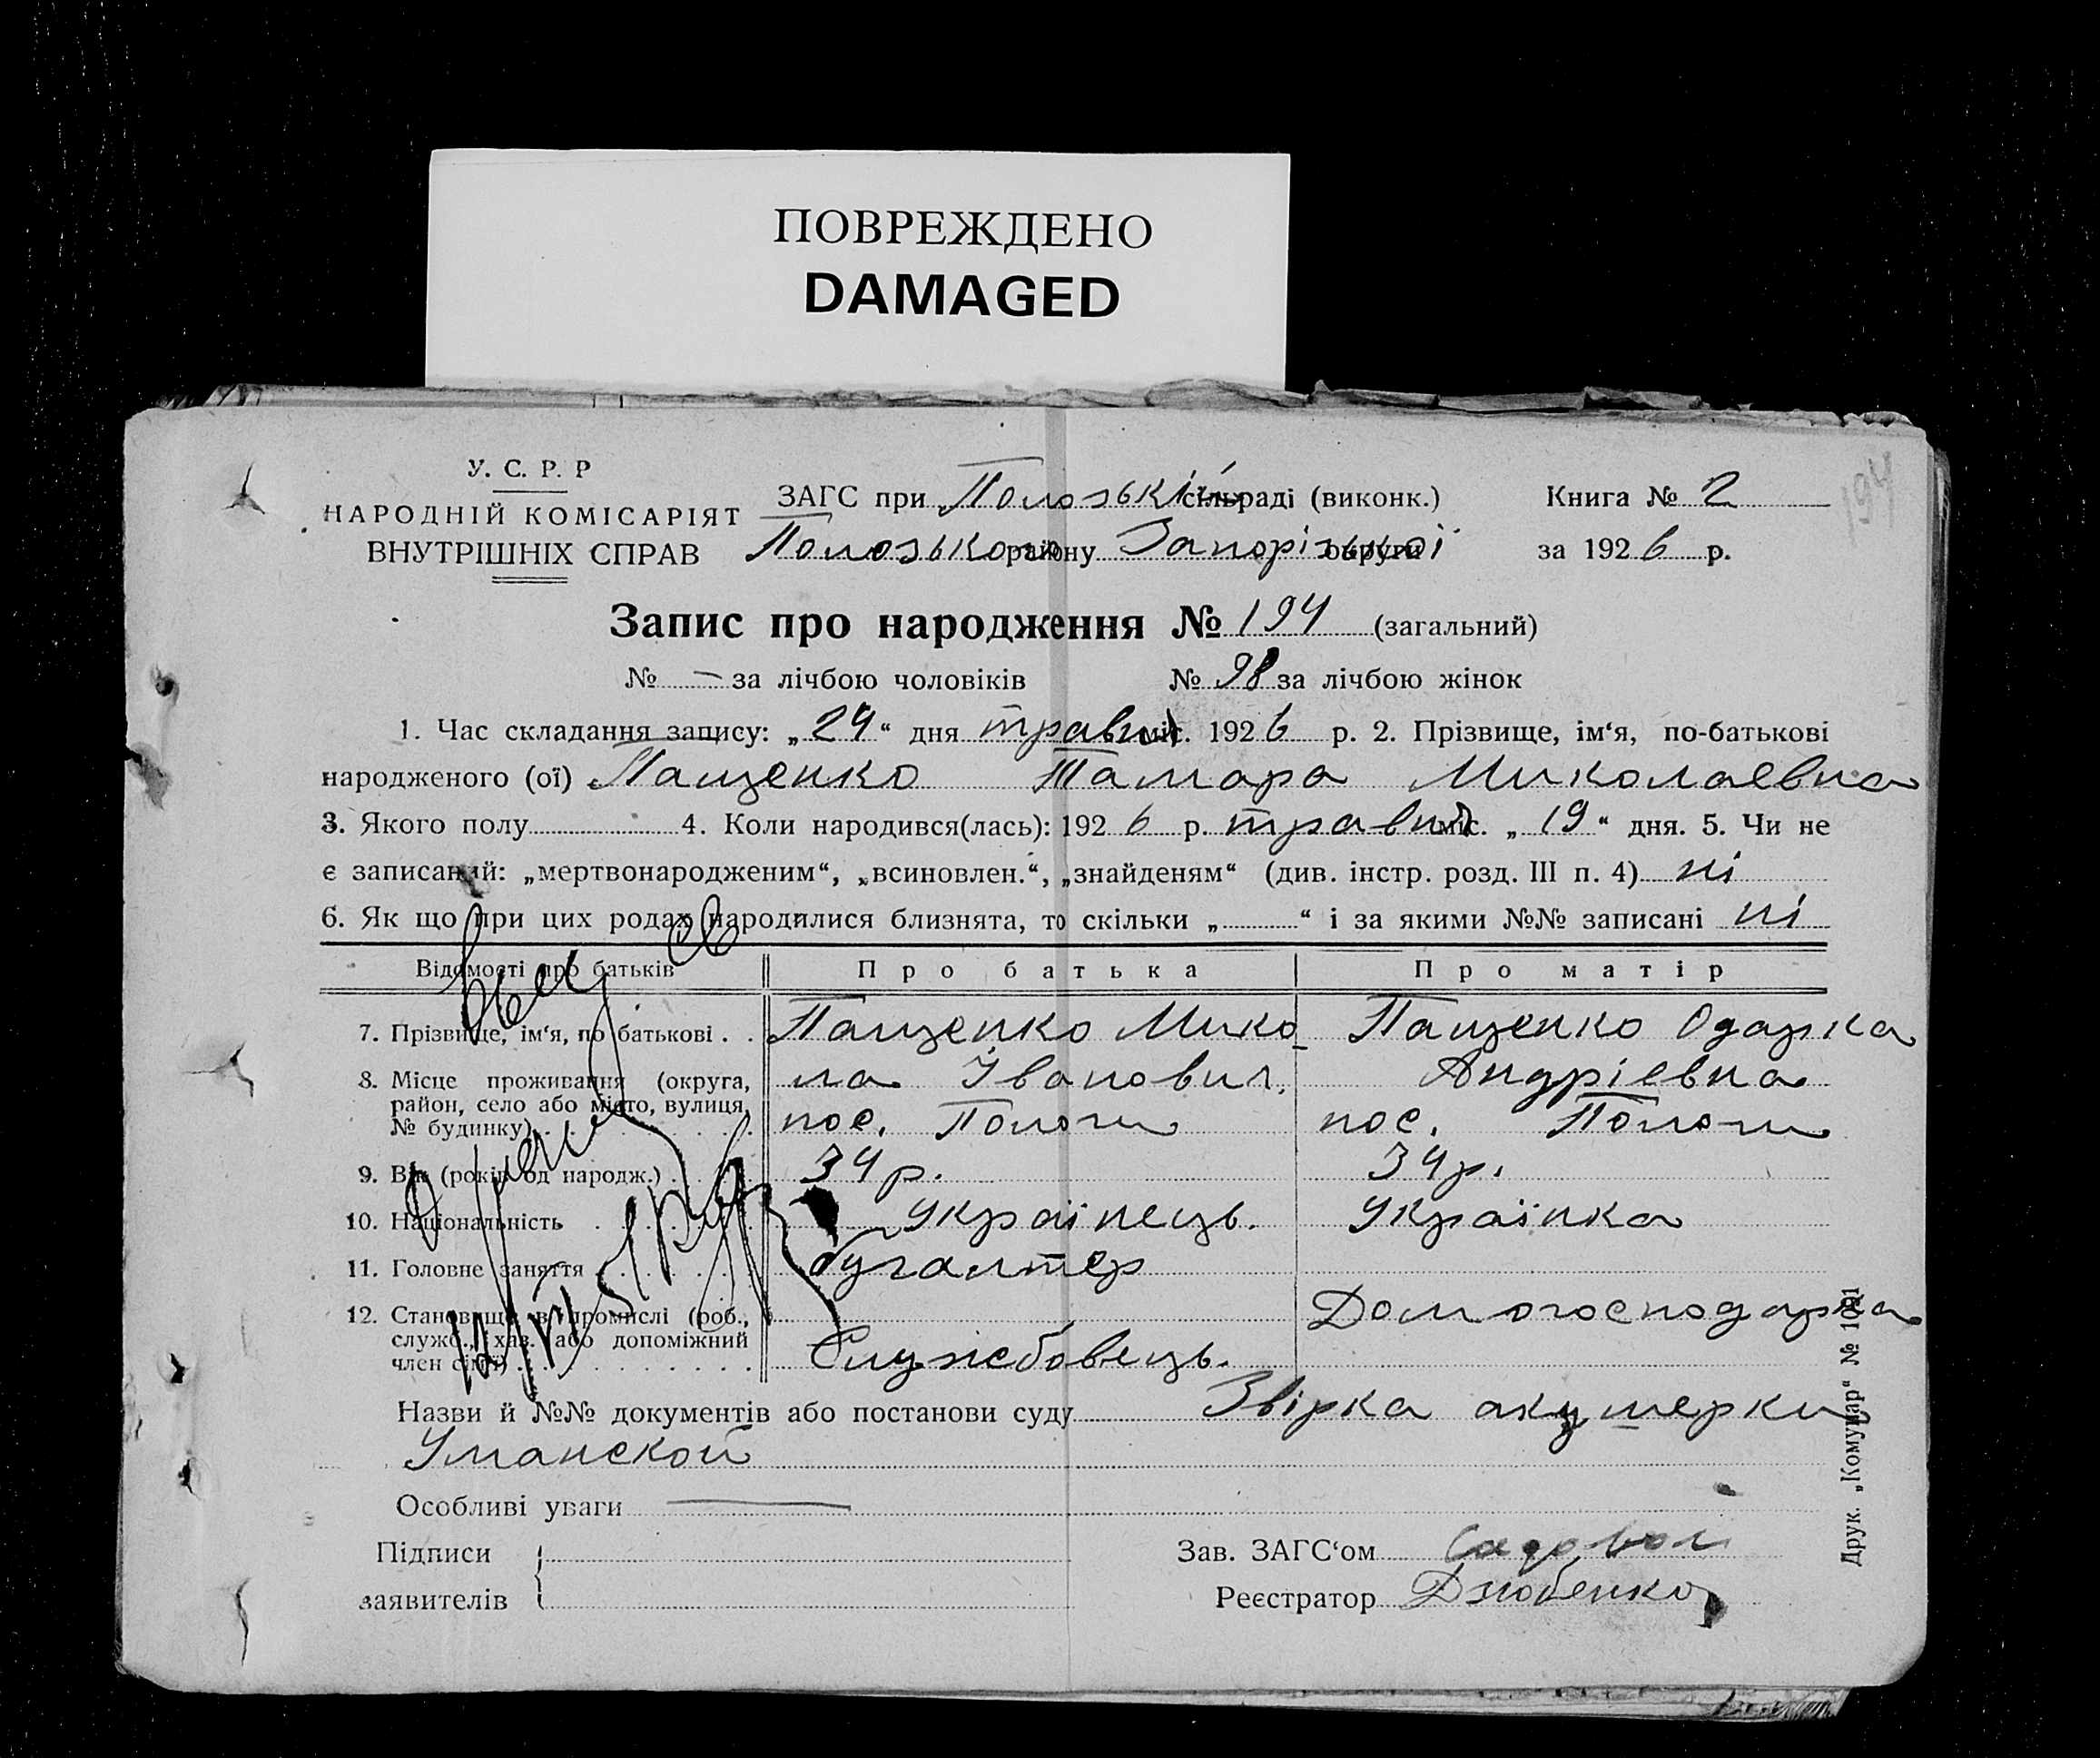 ПОВРЕЖДЕНО
DAMAGED
194
У. С. Р. Р
НАРОДНІЙ КОМІСАРІЯТ
ВНУТРІШНІХ СПРАВ
ЗАГС при Полозькій сільраді (виконк.) Книга № 2
Полозького району Запорізької округи за 1926 р.
Запис про народження № 194 (загальний)
№ — за лічбою чоловіків № 98 за лічбою жінок
1. Час складання запису: „24“ дня травня міс. 1926 р. 2. Прізвище, ім‘я, по-батькові
народженого (ої) Пащенко Тамара Миколаевна
3. Якого полу 4. Коли народився(лась): 1926 р. травня міс. „19“ дня. 5. Чи не
є записаний: „мертвонародженим“, „всиновлен.“, „знайденям“ (див. інстр. розд. III п. 4) ні
6. Як що при цих родах народилися близнята, то скільки „ “ і за якими №№ записані ні
Відомості про батьків Про батька Про матір
7. Прізвище, ім‘я, по батькові . . Пащенко Мико- Пащенко Одарка
8. Місце проживання (округа, ла Іванович, Андріевна
район, село або місто, вулиця,
№ будинку) пос. Пологи пос. Пологи
9. Вік (років од народж.) 34 р. 34 р.
10. Національність Українець. Українка
11. Головне заняття бугалтер
12. Становище в промислі (роб., Домогосподарка
служб., хаз. або допоміжний
член сім‘ї) Службовець.
Назви й №№ документів або постанови суду Звірка акушерки
Уманской
Особливі уваги —
Підписи
заявителів
Зав. ЗАГС‘ом
Реєстратор Дзюбенко
Друк. „Комунар“ № 1091